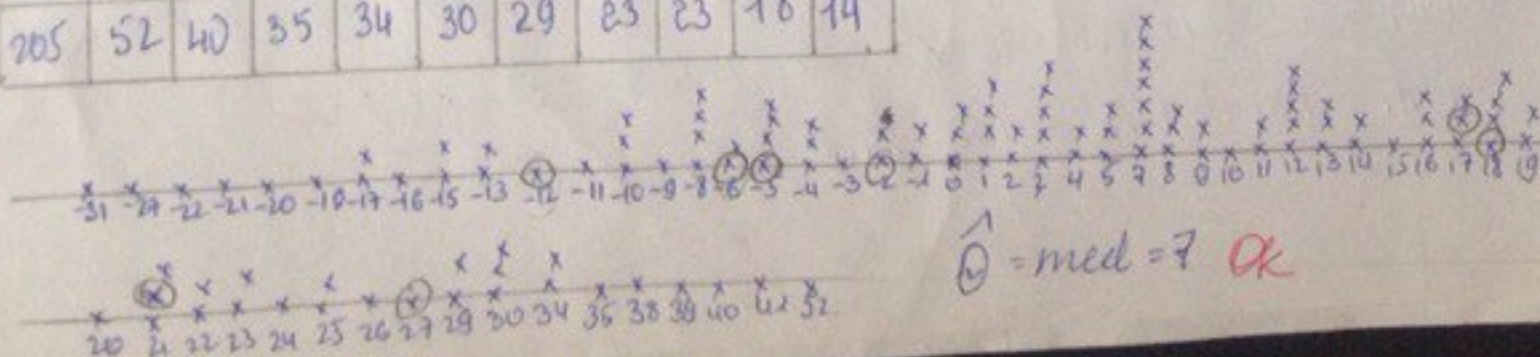 205 52 40 35 34 30 29 23 23 18 14
-31 -27 -22 -21 -20 -19 -17 -16 -15 -13 -12 -11 -10 -9 -8 -6 -5 -4 -3 -2 -1 0 1 2 3 4 5 7 8 9 10 11 12 13 14 15 16 17 18 19
20 21 22 23 24 25 26 27 29 30 34 35 38 39 40 42 52
θ̂ = med = 7 Ok